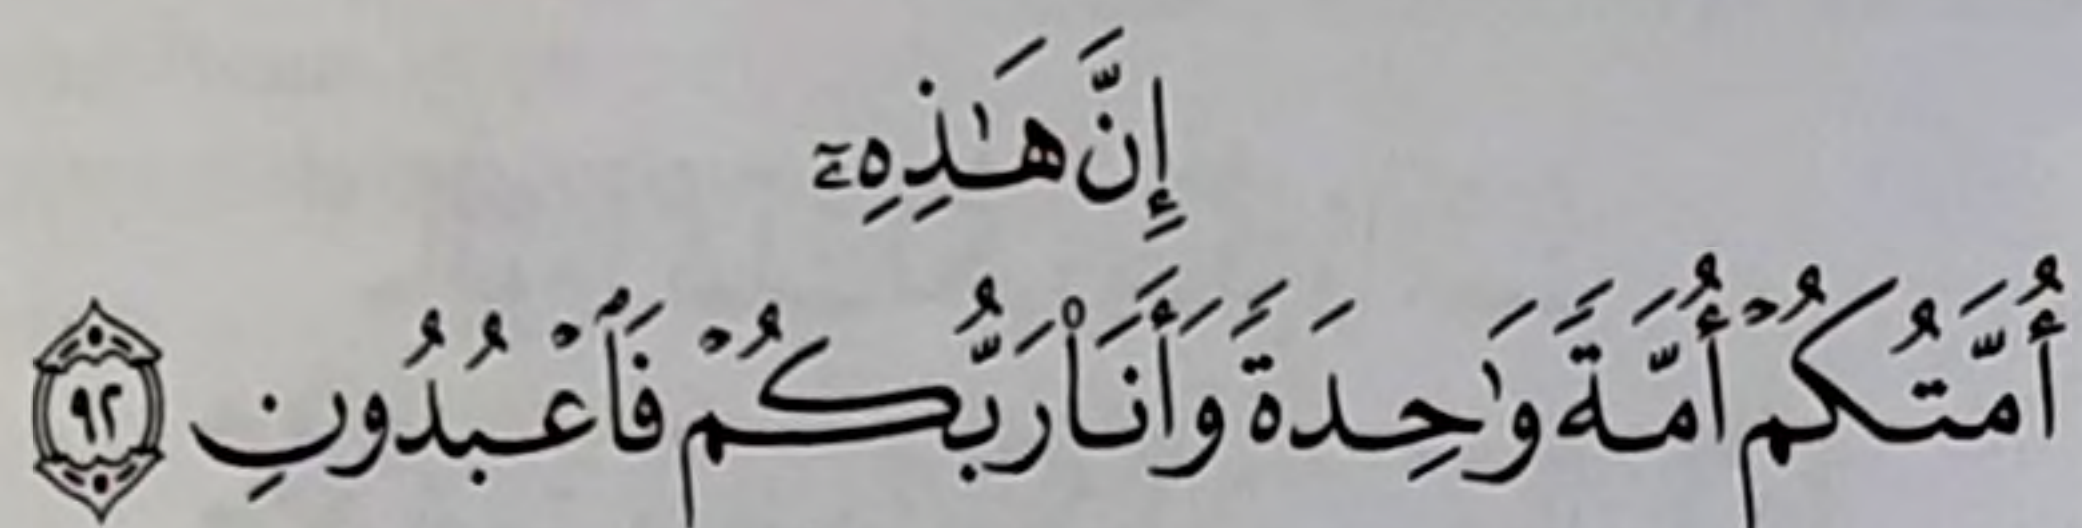 إِنَّ هَٰذِهِۦٓ
أُمَّتُكُمۡ أُمَّةٗ وَٰحِدَةٗ وَأَنَا۠ رَبُّكُمۡ فَٱعۡبُدُونِ ٩٢